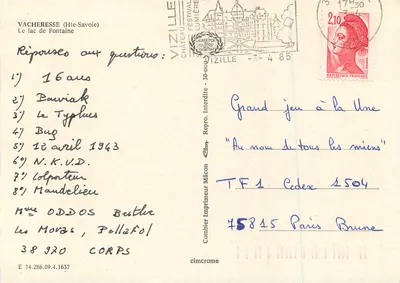 VACHERESSE (Hte-Savoie)
Le lac de Fontaine
Réponses aux questions:
1°) 16 ans
2°) Bawiak
3°) Le Typhus
4°) Bug
5°) 12 avril 1943
6°) N.K.V.D.
7°) Colporteur
8°) Mandelieu
Mme ODDOS
Les Moras, Pellafol
38 970 CORPS
E 74.286.09.4.1637
Combier Imprimeur Mâcon
Repro. Interdite
cimcrome
VIZILLE
FESTIVAL
LUMIÈRE
VIZILLE
4 85
2,10
Grand jeu à la Une
"Au nom de tous les miens"
TF1 Cedex 1504
75815 Paris Brune